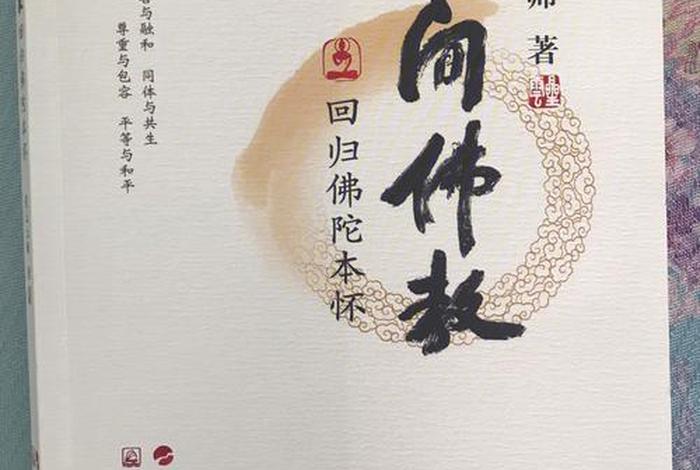 师 著
间佛教
回归佛陀本怀
与融和 同体与共生
尊重与包容 平等与和平